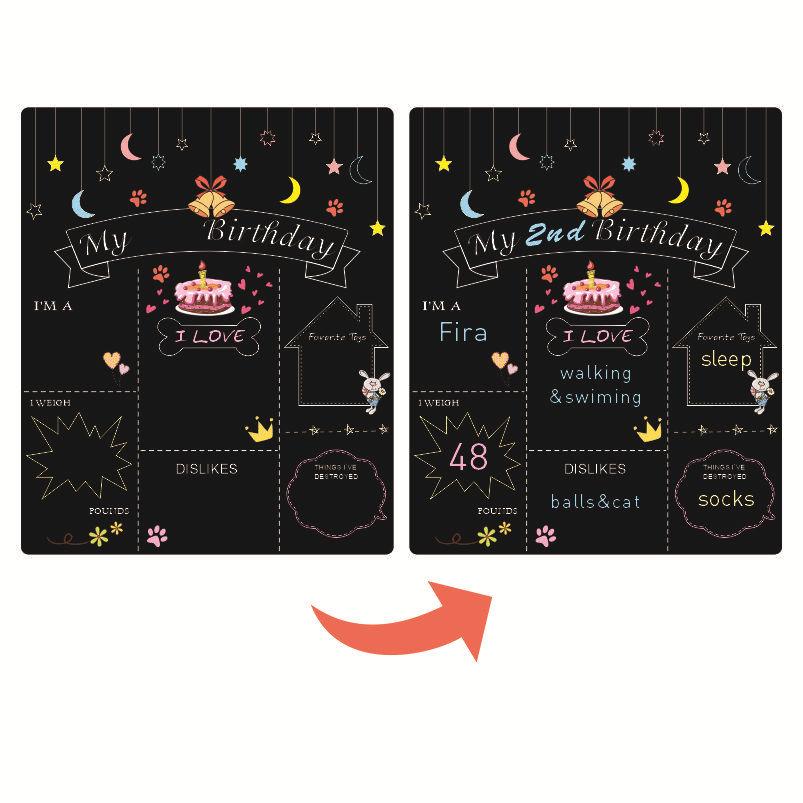 My Birthday
I'M A
I LOVE
Favorite Toys
I WEIGH
DISLIKES
THINGS I'VE
DESTROYED
POUNDS
My 2nd Birthday
I'M A
Fira
I LOVE
walking
&swiming
Favorite Toys
sleep
I WEIGH
48
POUNDS
DISLIKES
balls&cat
THINGS I'VE
DESTROYED
socks